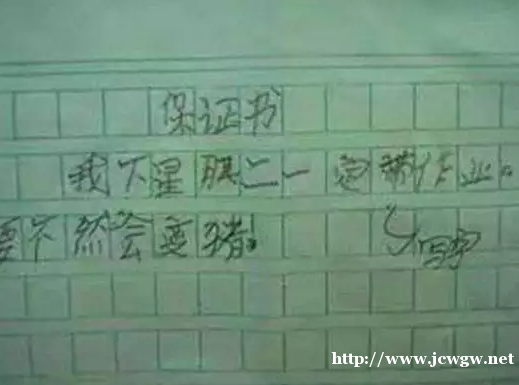 保证书
我下星期二一定带作业。
要不然会变猪。
http://www.jcwgw.net